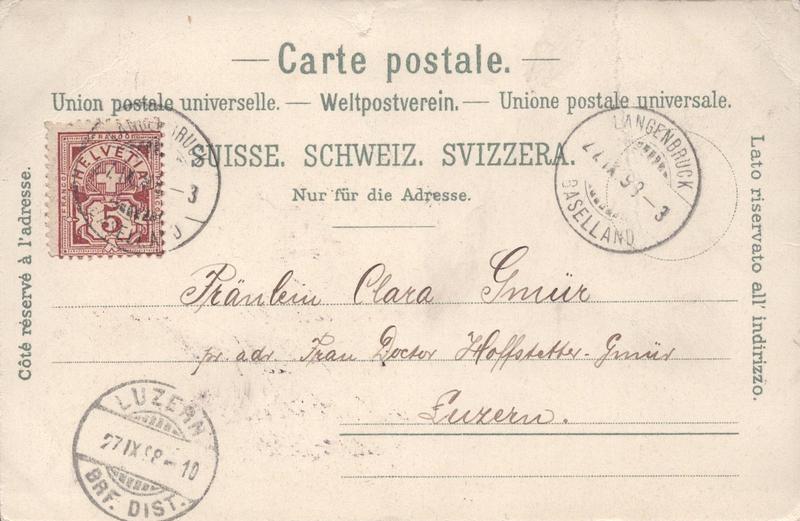 — Carte postale. —
Union postale universelle. — Weltpostverein. — Unione postale universale.
SUISSE. SCHWEIZ. SVIZZERA.
Nur für die Adresse.
Côté réservé à l'adresse.
Lato riservato all' indirizzo.
FRANCO
HELVETIA
5
LANGENBRUCK
BASELLAND
Fräulein Clara Gmür
pr. adr. Frau Doctor Hoffstetter-Gmür
Luzern.
LUZERN
27 IX 98 – 10
BRF. DIST.